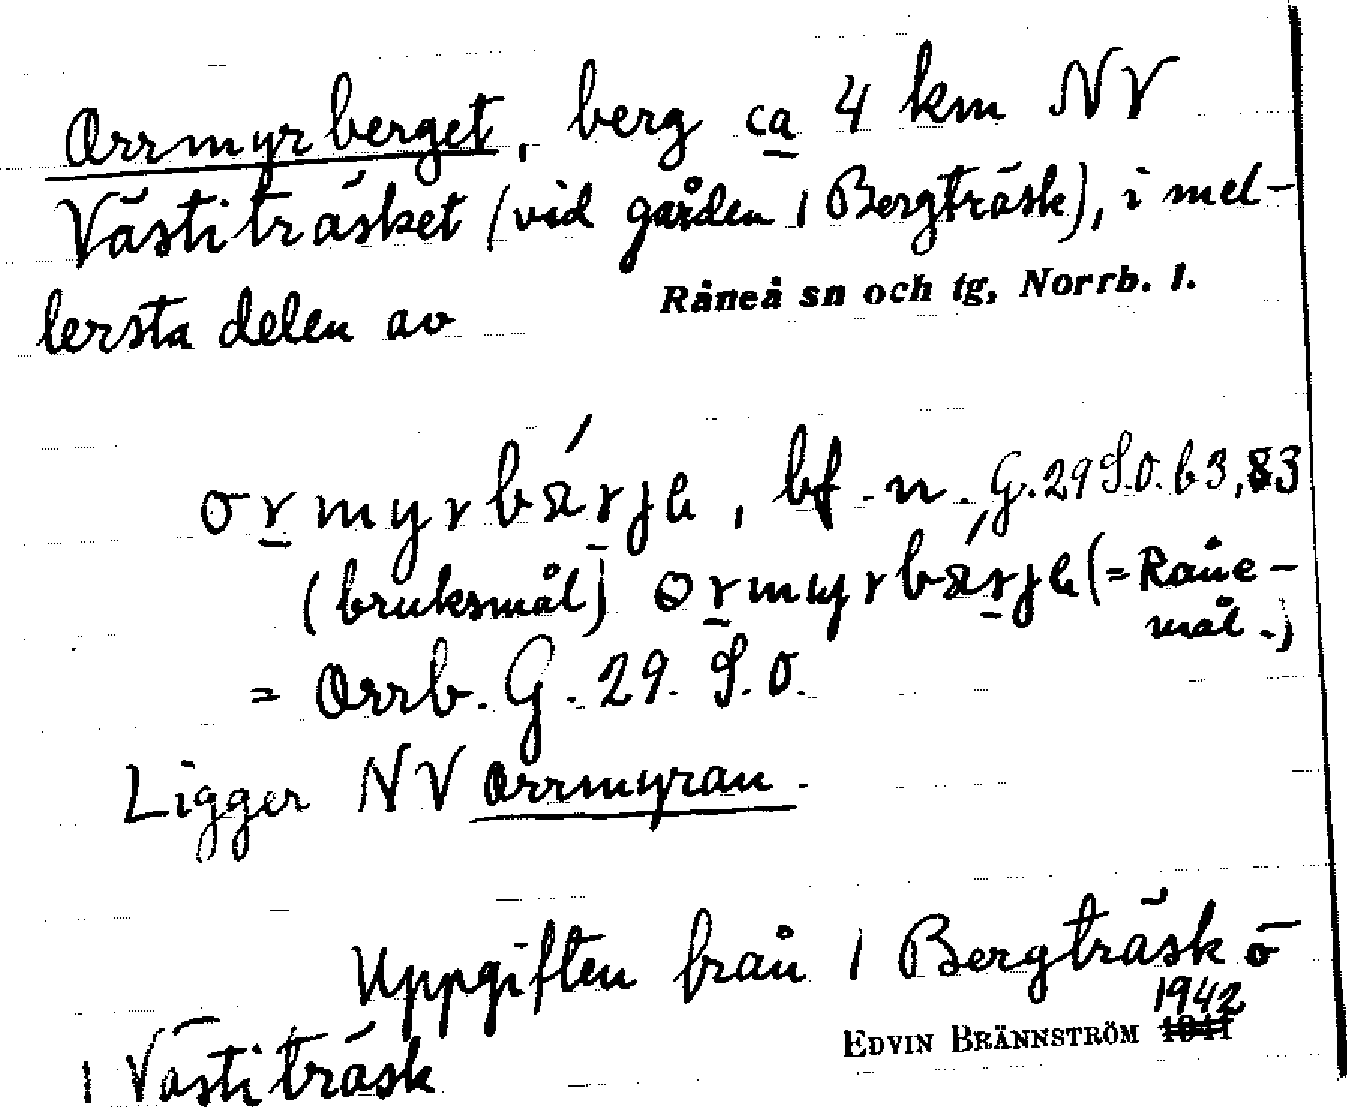 Orrmyrberget, berg ca 4 km NV
Västiträsket (vid gården 1 Bergträsk), i mel-
lersta delen av Råneå sn och tg, Norrb. l.
ormyrbärje, bf. n. G. 29 S.O. 63, 83
(bruksmål) ormyrbärje (= Råne-
mål.)
= Orrb. G. 29. S.O.
Ligger NV Orrmyran.
Uppgiften från 1 Bergträsk o
1 Västiträsk
EDVIN BRÄNNSTRÖM 1942